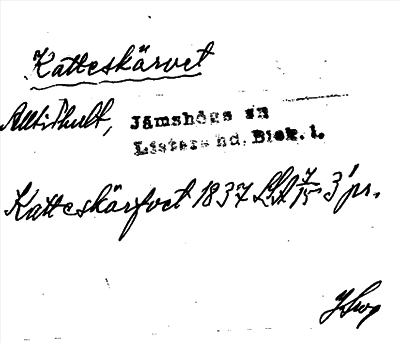 Katteskärvet
Alltidhult, Jämshögs sn
Listers hd. Blek. l.
Katteskärfvet 1837 LSA 7/15 3 pr.